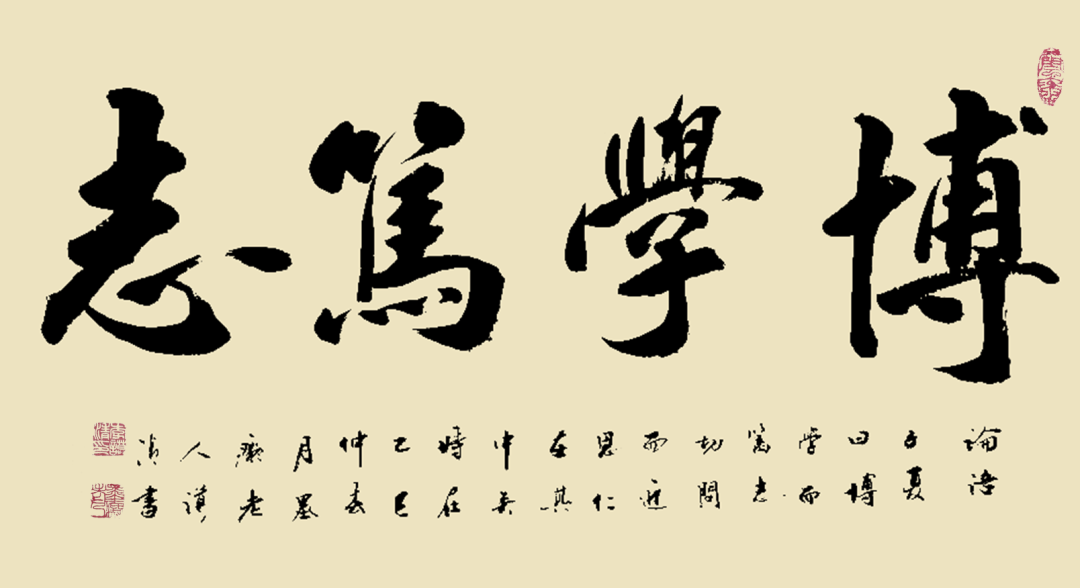 博學篤志
論語
子夏
曰博
學而
篤志
切問
而近
思仁
在其
中矣
時在
己巳
仲春
月墨
老
人漢
書